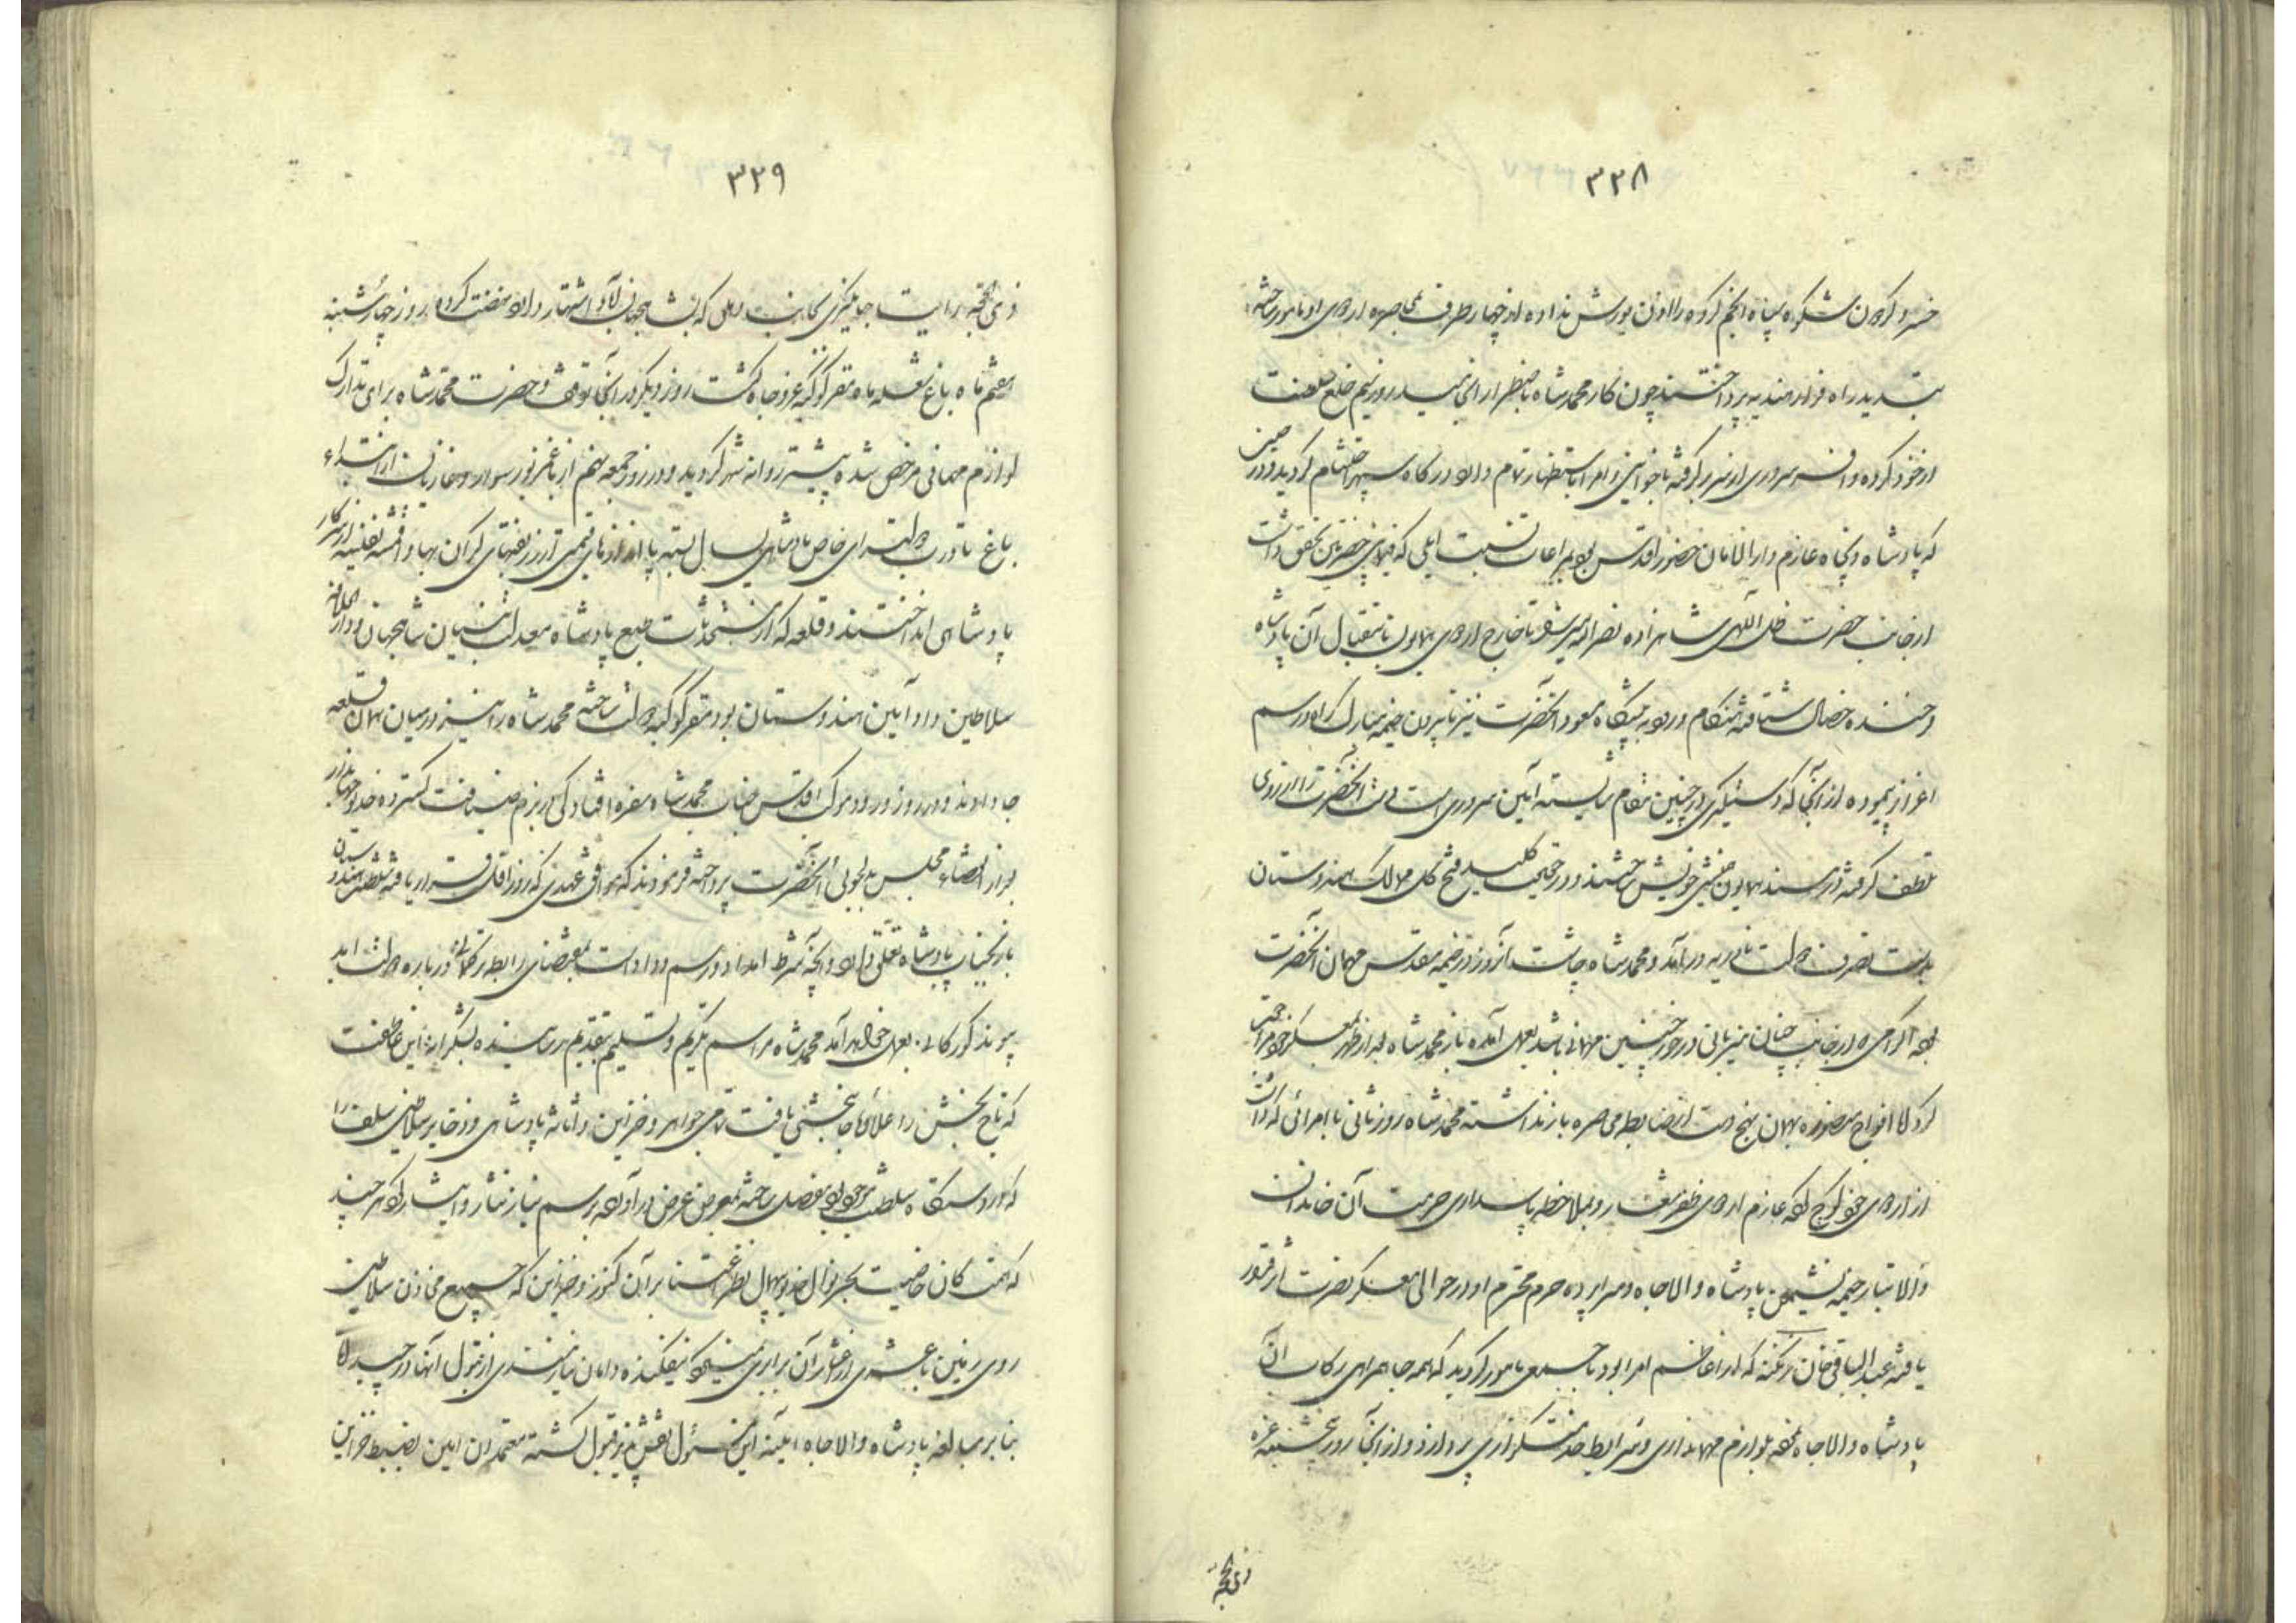 ۳۳۸
خسرو گردون شکوه سپاه انجم گروه را اذن یورش نداده از چهار طرف بمحاصره اردوی او مامور ساخته
بتسدید راه فرار هندیه پرداختند چون کار محمد شاه باضطرار انجامید روز نیم خلع سلطنت
از خود کرده و افسر سروری از سر برگرفته با خوانین و امرا باستظهار تمام وارد درگاه سپهر احتشام گردید و در حین
که پادشاه و یجاه عازم دارالامان حضور اقدس بود بمراعات نسبت ایلی که فیمابین حضرتین تحقق داشت
از جانب حضرت ظل اللهی شاهزاده نصرالله میرزا تا خارج اردوی همایون باستقبال آن پادشاه
خجسته خصال شتافته هنگام ورود به پیشگاه آنحضرت نیز تا بیرون خیمه مبارک راه و رسم
اعزاز پیموده از آنجا که دستگیری در چنین مقام شایسته آیین سروری است دست آنحضرت را از روی
تلطف گرفته در مسند همایون همنشین خویش ساختند و در حقیقت کلید فتح کل ممالک هندوستان
بدست تصرف دولت نادریه درآمد و محمد شاه چاشت آنروز در خیمه مقدس مهمان آنحضرت
بوده اکرامی که از جانب چنان میزبانی در خور چنین مهمانی باشد بعمل آمده باز محمد شاه بعد از ظهر بمعسکر خود مراجعت
کرد لیکن افواج منصوره بهمان نهج دست از ضابطه محاصره باز نداشته محمد شاه روز ثانی با امرائی که داشت
از اردوی خود کوچ کرده عازم اردوی ظفر شعار و بملاحظه پاسداری حرمت آن خاندان
والا تبار خیمه نشیمن پادشاه والاجاه و سراپرده حرم محترم او در حوالی معسکر نصرت اثر قرار
یافته عبدالباقی خان زنگنه که از اعاظم امرا بود با جمعی مامور گردید که همه جا همراهی رکاب آن
پادشاه والاجاه نموده بلوازم مهمانداری و شرایط خدمتگزاری پردازد و از آنجا روز پنجشنبه غره
ذی حجه
۳۳۹
ذی الحجه رایت جهانگیری بجانب دهلی که بشاهجهان آباد اشتهار دارد نهضت کرده روز چهارشنبه
هفتم ماه باغ شعله ماه مقر کوکبه عز و جاه گشت روز دیگر در آنجا توقف و حضرت محمد شاه برای تدارک
لوازم مهمانی مرخص شده پیشتر روانه شهر گردید و در روز جمعه نهم از باغ مزبور سوار و غازیان از ابتداء
باغ تا درب دولتسرای خاص پادشاهی یسال بسته پا اندازهای قیمتی از زربفتهای گران بها و اقمشه نفیسه از سرکار
پادشاهی انداختند و قلعه که از مستحدثات طبع پادشاه معدلت بنیان شاهجهان و دار الخلافه
سلاطین داد آیین هندوستان بود مقر کوکبه دولت ساخته محمد شاه را نیز در میان همان قلعه
جا دادند و در روز ورود موکب اقدس جناب محمد شاه سفره افتادگی در بزم ضیافت گسترده خدیو جهاندار
بعد از انقضاء مجلس بدلجوئی آنحضرت پرداخته فرمودند که موافق عهدی که روز اول قرار یافته سلطنت هندوستان
باز بجناب پادشاه تعلق دارد و آنچه شرط امداد و رسم وداد است بمقتضای رابطه ترکمانی درباره دولت ابد
پیوند گورکانی بعمل خواهد آمد محمد شاه مراسم تکریم و تسلیم بتقدیم رسانیده بشکرانه این عاطفت
که تاج بخشی را علاوه جانبخشی یافت تمامی جواهر و خزاین و اثاثه پادشاهی و ذخایر سلاطین سلف را
که در دستگاه سلطنت موجود بود مفصل ساخته بمعرض عرض درآورده برسم نیاز نثار و ایثار کرد هر چند
که همت کان خاصیت بحر نوال خدیو بیهمال نظر اعتنا بر آن کنوز و خزاین که جمیع مخازن سلاطین
روی زمین با عشری از اعشار آن برابری نمیکرد نیفکنده دامان نیازمندی از قبول آنها در چیده اما
بنا بر مبالغه پادشاه والاجاه آیینه این مسئول نقش پذیر قبول گشته معتمدان امین بضبط خزاین